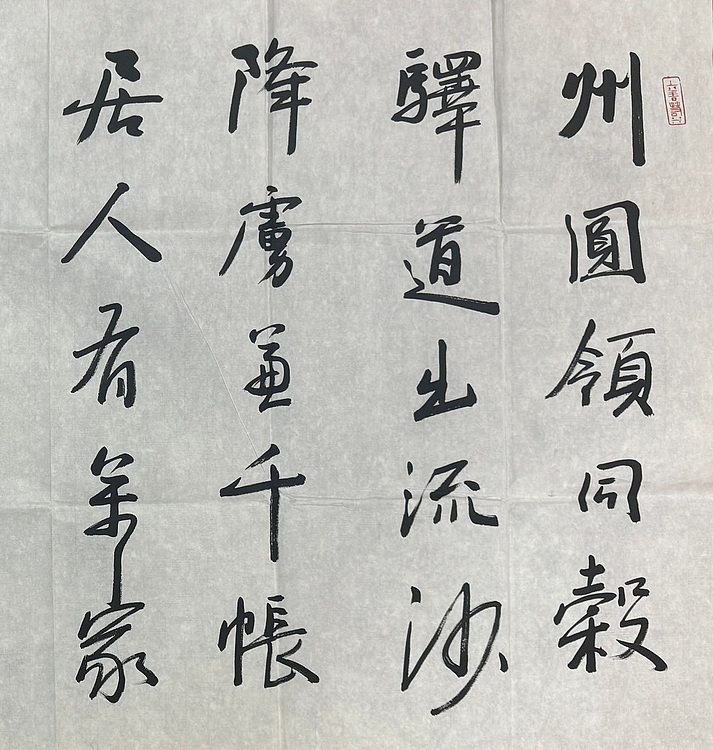 州圓領同穀
驛道出流沙
降虜兼千帳
居人有萬家